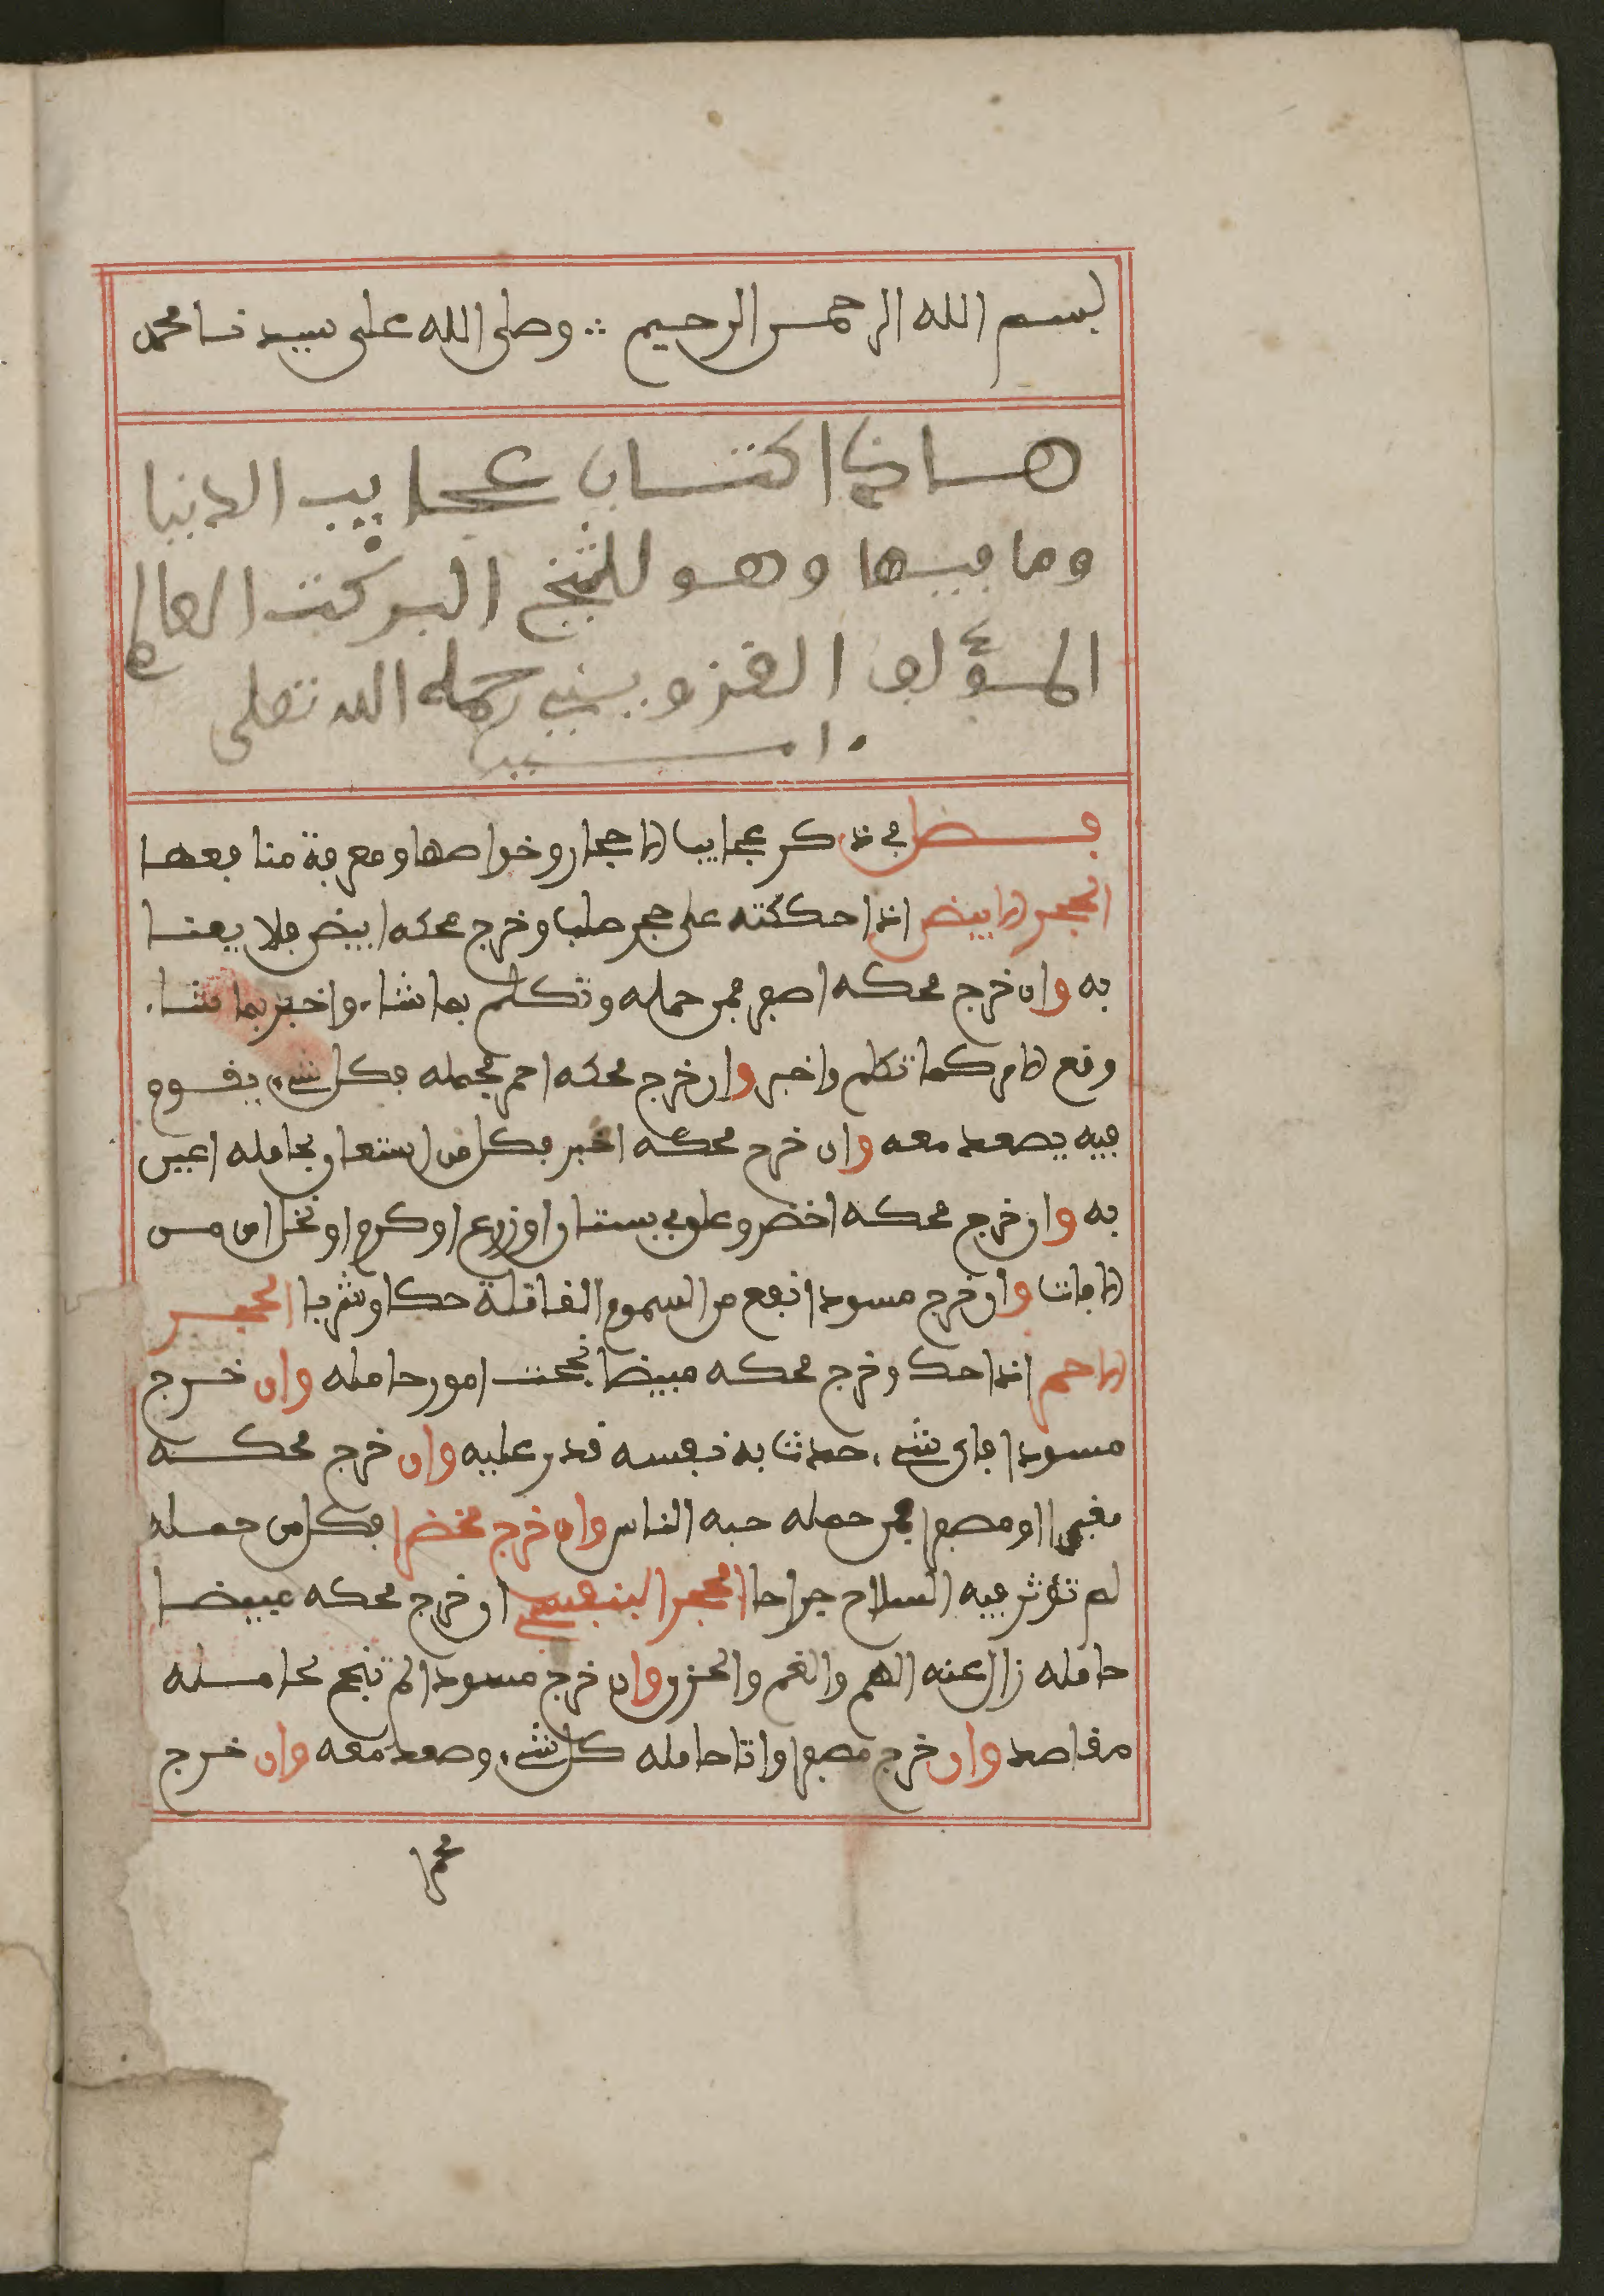 بسم الله الرحمن الرحيم ∴ وصلى الله على سيدنا محمد
هاذا كتاب عجايب الدنيا
وما فيها وهو للشيخ البركت العالم
المؤلف القزويني رحمه الله تعلى
امين
فصل في ذكر عجايب الاحجار وخواصها ومعرفة منافعها
الحجر الابيض اذا حككته على حجر صلب وخرج محكه ابيض فلا يعبا
به وان خرج محكه اصفر فمن حمله وتكلم بما شاء واخبر بما شاء
وقع الامر كما تكلم واخبر وان خرج محكه احمر فحمله فكل شيء يقوم
فيه يصعد معه وان خرج محكه اغبر فكل من استعان بحامله اعين
به وان خرج محكه اخضر وعلق في بستان او زرع او كرم او نخل امن من
الافات وان خرج مسودا نفع من السموم القاتلة حكا وشربا الحجر
الاحمر اذا حك وخرج محكه مبيضا نجحت امور حامله وان خرج
مسودا فاي شيء حدثت به نفسه قدر عليه وان خرج محكه
مغبرا او مصفرا فمن حمله حبه الناس وان خرج مخضرا فكل من حمله
لم تؤثر فيه السلاح جراحا الحجر البنفسجي ان خرج محكه مبيضا
حامله زال عنه الهم والغم والحزن وان خرج مسودا لم تنجح لحامله
مقاصد وان خرج مصفرا واتا حامله كل شيء وصعد معه وان خرج
محمرا